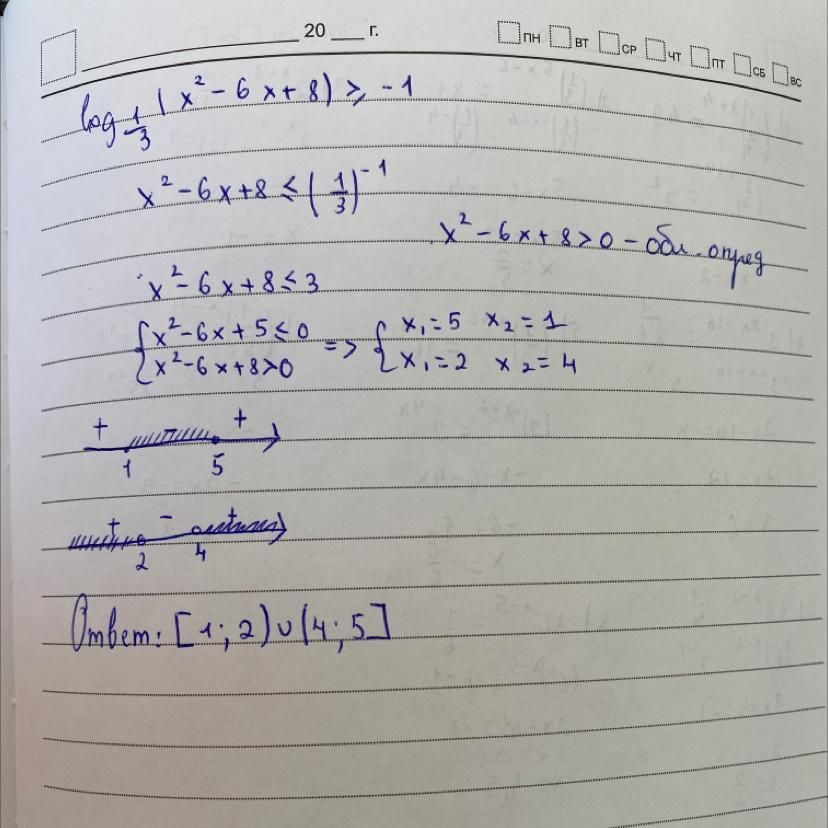 20 г. ПН ВТ СР ЧТ ПТ СБ ВС
log 1/3 (x² - 6x + 8) ≥ -1
x² - 6x + 8 ≤ (1/3)⁻¹
x² - 6x + 8 > 0 - обл. опред
x² - 6x + 8 ≤ 3
{ x² - 6x + 5 ≤ 0 => { x₁ = 5 x₂ = 1
x² - 6x + 8 > 0 x₁ = 2 x₂ = 4
+ +
1 5
+ - +
2 4
Ответ: [1; 2) ∪ (4; 5]